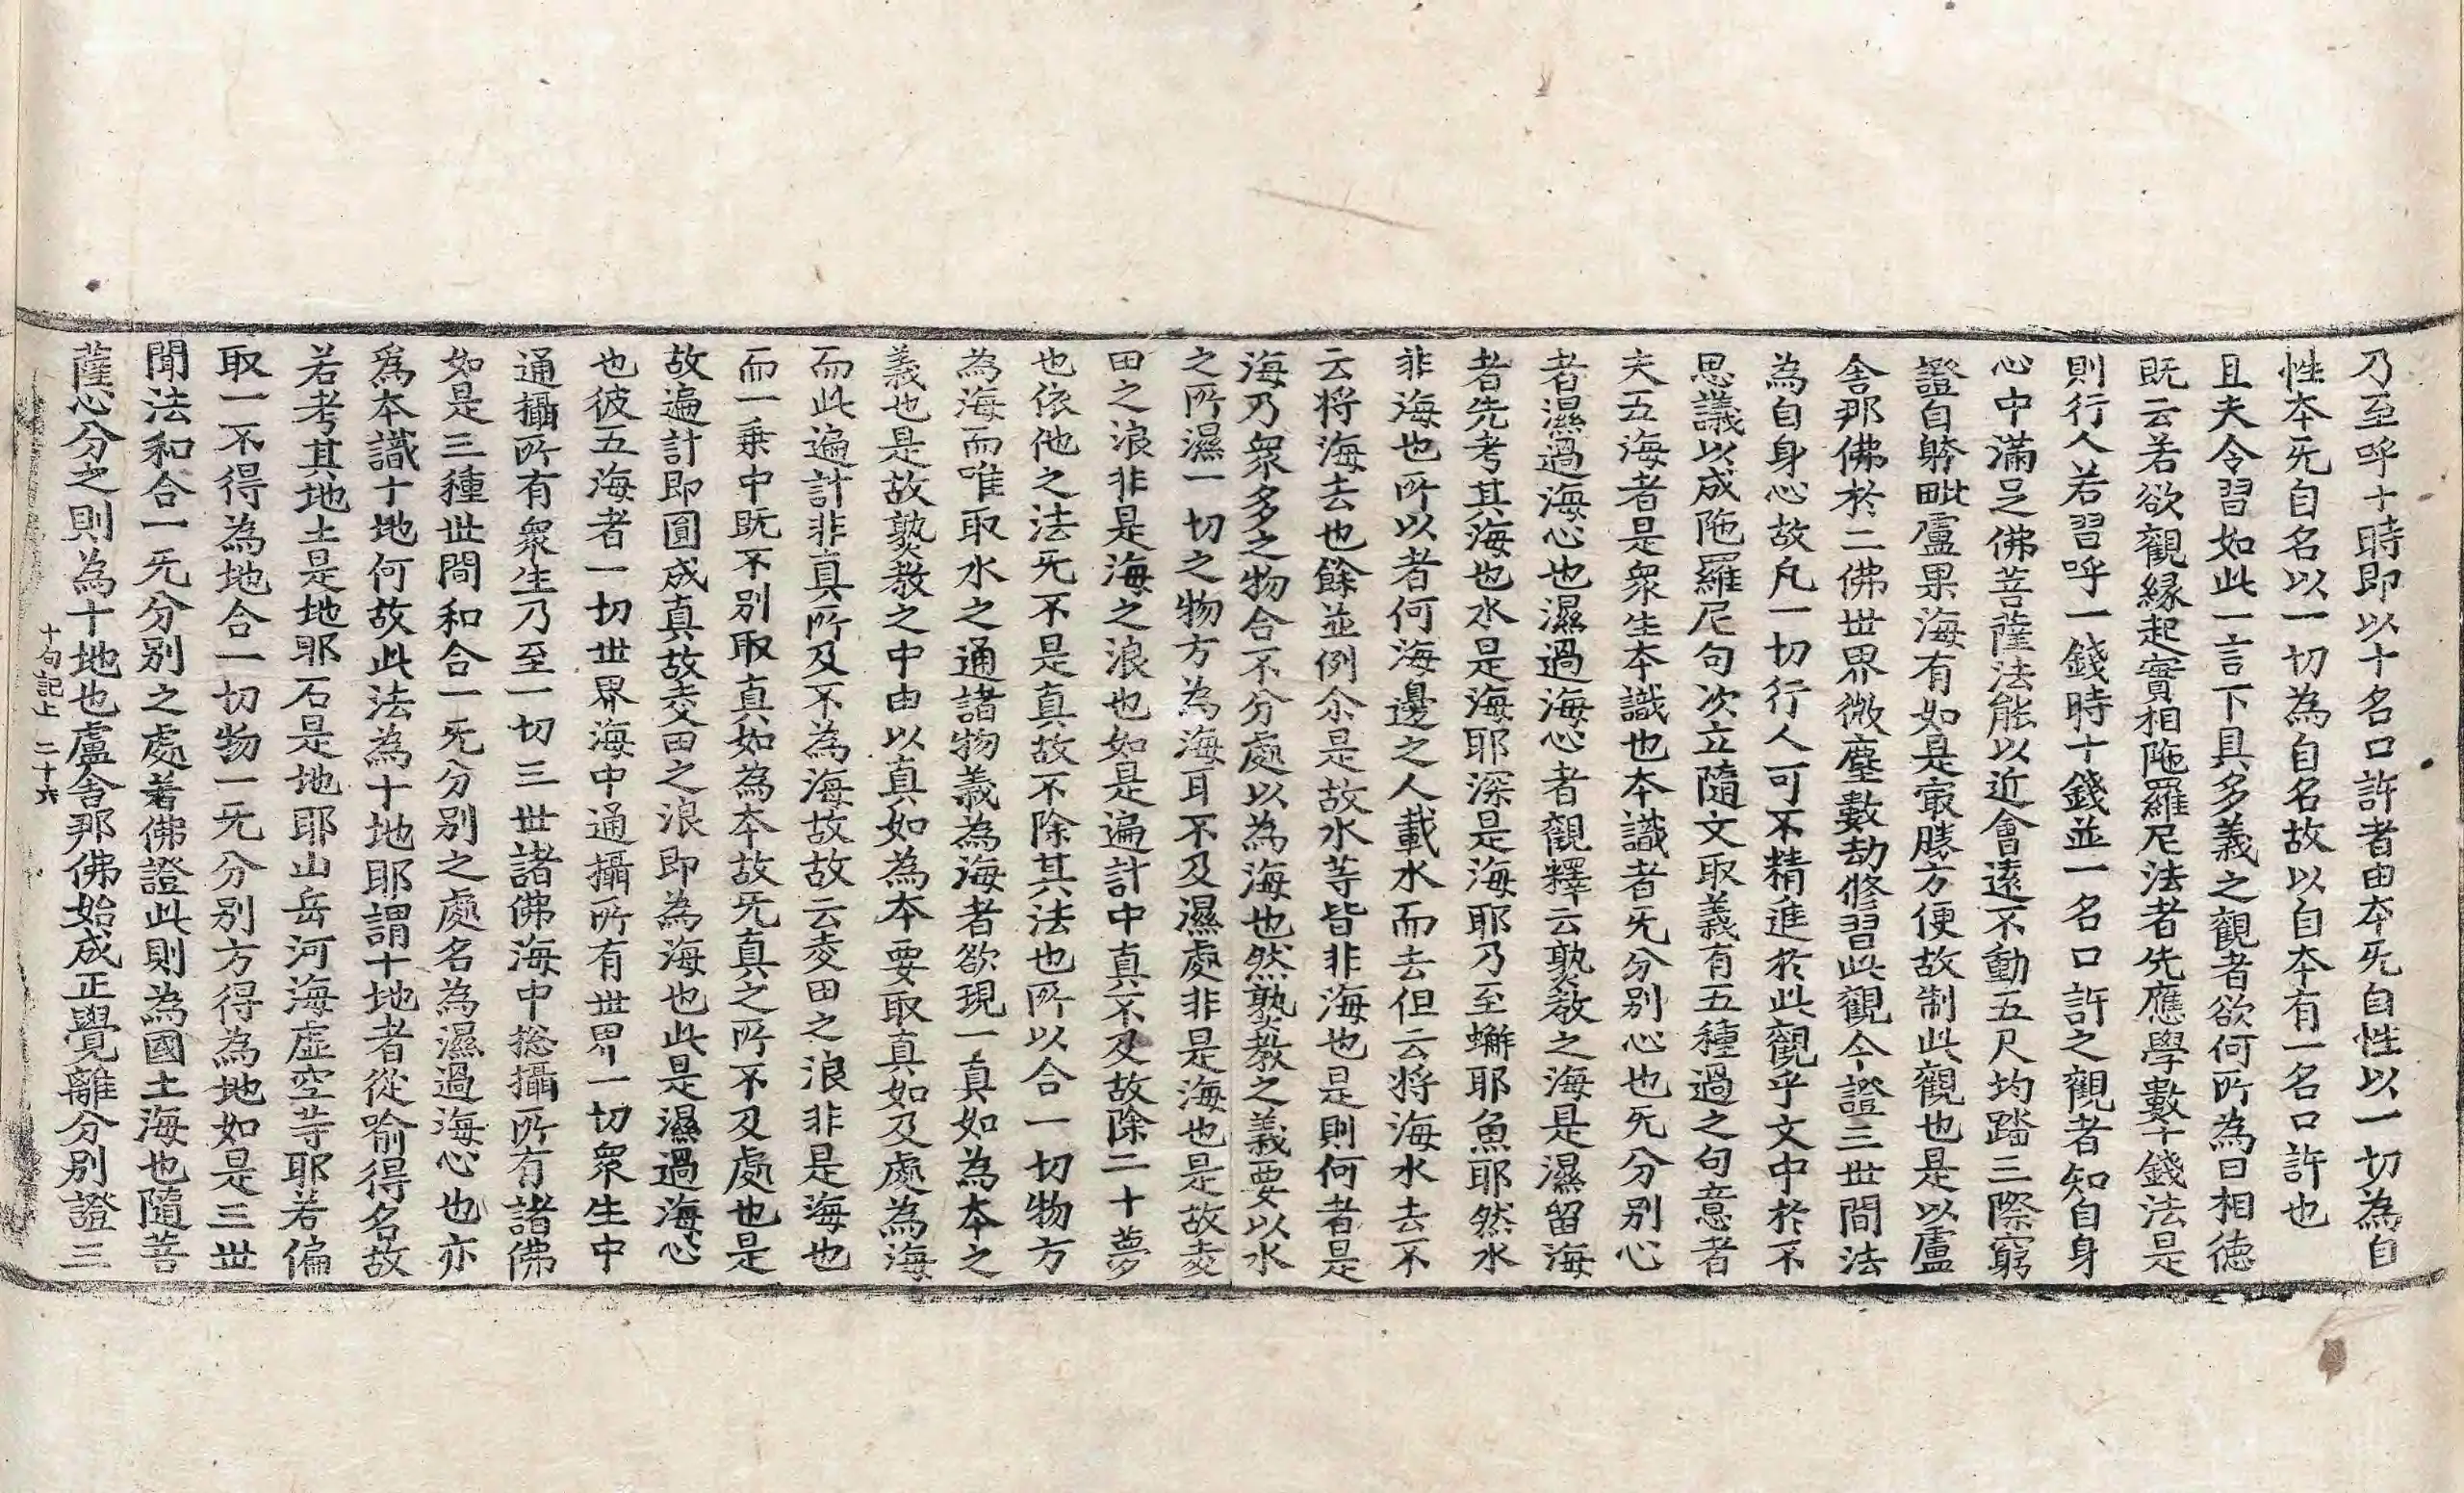 乃至呼十時即以十名口許者由本旡自性以一切為自
性本旡自名以一切為自名故以自本有一名口許也
且夫令習如此一言下具多義之觀者欲何所為曰相徳
既云若欲觀緣起實相陁羅尼法者先應學數十錢法是
則行人若習呼一錢時十錢並一名口許之觀者知自身
心中滿足佛菩薩法能以近會遠不動五尺均踏三際窮
證自躰毗盧果海有如是㝡勝方便故制此觀也是以盧
舍那佛於二佛世界微塵數劫修習此觀今證三世間法
為自身心故凡一切行人可不精進於此觀乎文中於不
思議以成陁羅尼句次立隨文取義有五種過之句意者
夫五海者是衆生本識也本識者旡分別心也旡分別心
者濕過海心也濕過海心者觀釋云𤍨教之海是濕留海
者先考其海也水是海耶深是海耶乃至蠏耶魚耶然水
非海也所以者何海邊之人載水而去但云將海水去不
云將海去也餘並例尒是故水䒭皆非海也是則何者是
海乃衆多之物合不分處以為海也然𤍨教之義要以水
之所濕一切之物方為海耳不及濕處非是海也是故㚆
田之浪非是海之浪也如是遍計中真不及故除二十夢
也依他之法旡不是真故不除其法也所以合一切物方
為海而唯取水之通諸物義為海者欲現一真如為本之
義也是故𤍨教之中由以真如為本要取真如及處為海
而此遍計非真所及不為海故故云㚆田之浪非是海也
而一乗中既不別取真如為本故旡真之所不及處也是
故遍計即圓成真故㚆田之浪即為海也此是濕過海心
也彼五海者一切世界海中通攝所有世界一切衆生中
通攝所有衆生乃至一切三世諸佛海中摠攝所有諸佛
如是三種世間和合一旡分別之處名為濕過海心也亦
爲本識十地何故此法為十地耶謂十地者從喻得名故
若考其地土是地耶石是地耶山岳河海虛空䒭耶若偏
取一不得為地合一切物一旡分別方得為地如是三世
聞法和合一旡分別之處若佛證此則為國土海也隨菩
薩心分之則為十地也盧舍那佛始成正覺離分別證三
十句記上 二十六